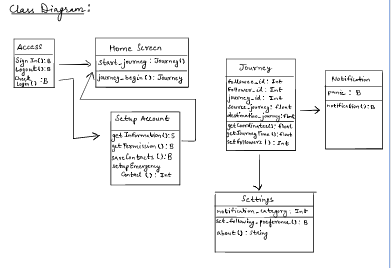 Class Diagram:
Access
Sign In(): B
Logout(): B
Check
Login(): B
Home Screen
start_journey : Journey()
journey_begin(): Journey
Setup Account
getInformation(): S
getPermission(): B
saveContacts(): B
setupEmergency
Contact(): Int
Journey
followee_id: Int
follower_id: Int
journey_id: Int
source_journey: float
destination_journey: float
getCoordinates(): float
getJourneyTime(): float
setFollowers(): Int
Notification
panic : B
notification(): B
Settings
notification_category: Int
set_following_preference(): B
about(): String